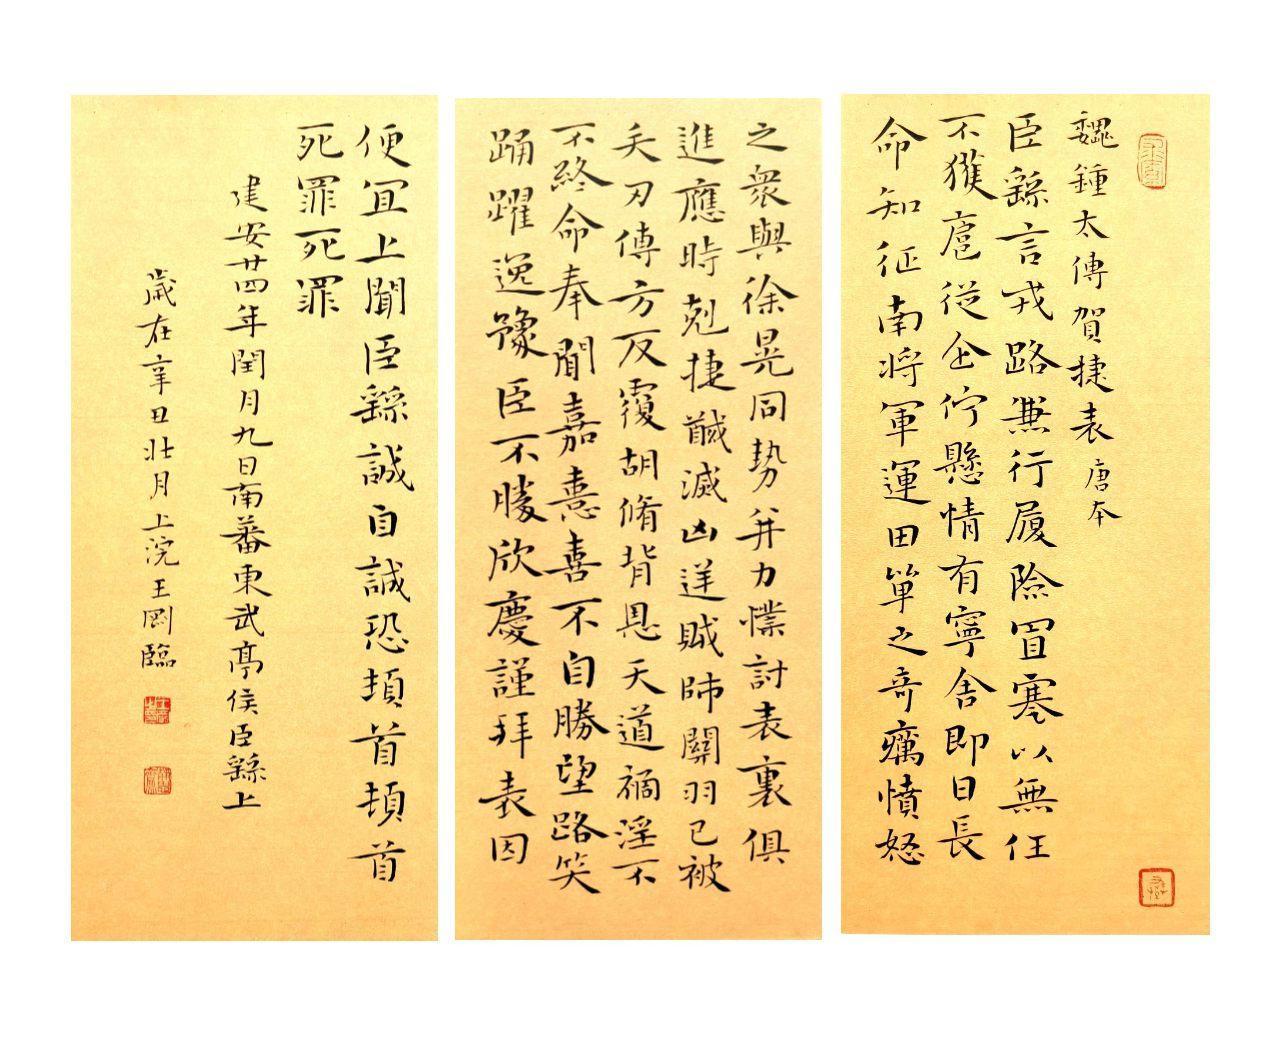 魏鍾太傅賀捷表唐本
臣繇言戎路兼行履險冒寒以無任
不獲扈從企佇懸情有寧舍即日長
命知征南將軍運田單之奇癘憤怒
之衆與徐晃同勢并力懍討表裏俱
進應時剋捷馘滅凶逆賊帥關羽已被
矢刃傅方反覆胡脩背恩天道禍淫不
不終命奉聞嘉憙喜不自勝望路笑
踊躍逸豫臣不勝欣慶謹拜表因
便宜上聞臣繇誠自誠恐頓首頓首
死罪死罪
建安廿四年閏月九日南蕃東武亭侯臣繇上
歲在辛丑壯月上浣王剛臨